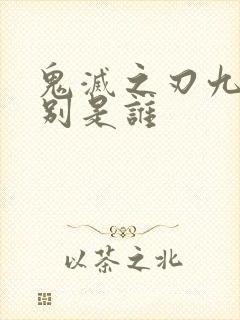 鬼滅之刃九
別是誰
以茶之北